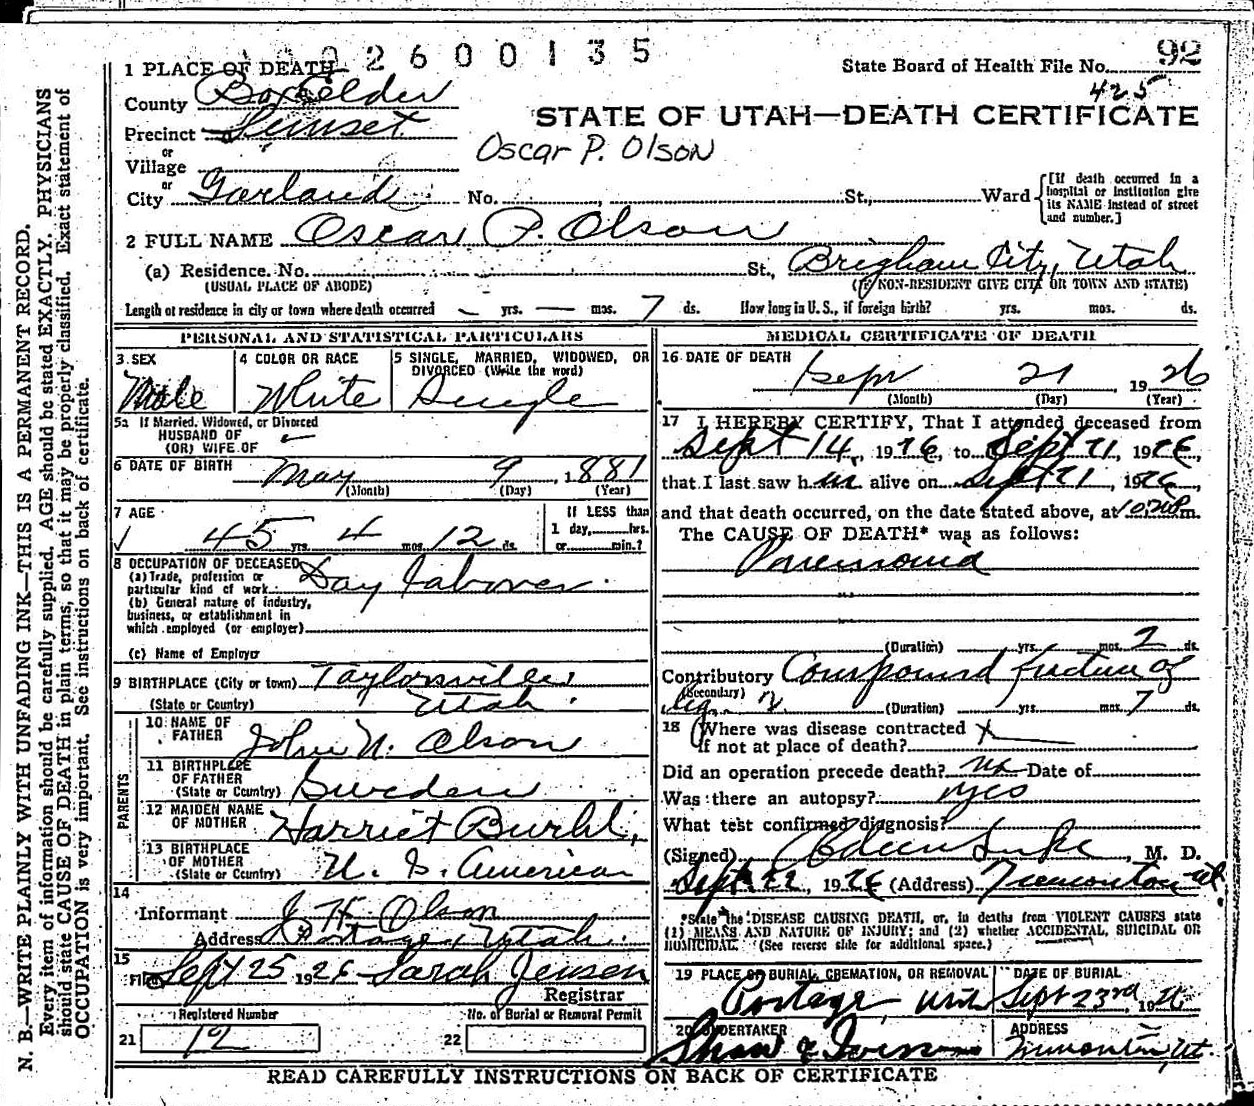 2600135
1 PLACE OF DEATH
State Board of Health File No. 92
425
County Boxelder
STATE OF UTAH—DEATH CERTIFICATE
Precinct Sunset
Oscar P. Olson
or
Village
or
City Garland No. St., Ward [If death occurred in a hospital or institution give its NAME instead of street and number.]
2 FULL NAME Oscar P. Olson
(a) Residence. No. St., Brigham City, Utah
(USUAL PLACE OF ABODE) (If NON-RESIDENT GIVE CITY OR TOWN AND STATE)
Length of residence in city or town where death occurred — yrs. — mos. 7 ds. How long in U. S., if foreign birth? yrs. mos. ds.
PERSONAL AND STATISTICAL PARTICULARS
3 SEX Male
4 COLOR OR RACE White
5 SINGLE, MARRIED, WIDOWED, OR DIVORCED (Write the word) Single
5a If Married, Widowed, or Divorced
HUSBAND OF
(OR) WIFE OF
6 DATE OF BIRTH May 9, 1881
(Month) (Day) (Year)
7 AGE 45 yrs. 4 mos. 12 ds.
If LESS than
1 day, hrs.
or min.?
8 OCCUPATION OF DECEASED
(a) Trade, profession or
particular kind of work Day Laborer
(b) General nature of industry,
business, or establishment in
which employed (or employer)
(c) Name of Employer
9 BIRTHPLACE (City or town) Taylorsville,
(State or Country) Utah
PARENTS
10 NAME OF FATHER John N. Olson
11 BIRTHPLACE OF FATHER
(State or Country) Sweden
12 MAIDEN NAME OF MOTHER Harriet
13 BIRTHPLACE OF MOTHER
(State or Country) U. S. American
14
Informant J H Olson
Address Portage, Utah.
15
Filed Sept 25 1926 Sarah Jensen
Registrar
Registered Number
21 12
No. of Burial or Removal Permit
22
MEDICAL CERTIFICATE OF DEATH
16 DATE OF DEATH
Sept 21 1926
(Month) (Day) (Year)
17 I HEREBY CERTIFY, That I attended deceased from
Sept 14, 1926, to Sept 21, 1926,
that I last saw him alive on Sept 21, 1926,
and that death occurred, on the date stated above, at m.
The CAUSE OF DEATH* was as follows:
(Duration) yrs. mos. 2 ds.
Contributory Compound fracture of
(Secondary) leg (Duration) yrs. mos. 7 ds.
18 Where was disease contracted
if not at place of death?
Did an operation precede death? Date of
Was there an autopsy? yes
What test confirmed diagnosis?
(Signed) , M. D.
Sept. 22, 1926 (Address) Tremonton Ut
*State the DISEASE CAUSING DEATH, or, in deaths from VIOLENT CAUSES state
(1) MEANS AND NATURE OF INJURY; and (2) whether ACCIDENTAL, SUICIDAL OR
HOMICIDAL. (See reverse side for additional space.)
19 PLACE OF BURIAL, CREMATION, OR REMOVAL Portage, Utah
DATE OF BURIAL Sept 23rd, 1926
20 UNDERTAKER Shaw &
ADDRESS Tremonton, Ut.
READ CAREFULLY INSTRUCTIONS ON BACK OF CERTIFICATE
N. B.—WRITE PLAINLY WITH UNFADING INK—THIS IS A PERMANENT RECORD.
Every item of information should be carefully supplied. AGE should be stated EXACTLY. PHYSICIANS
should state CAUSE OF DEATH in plain terms, so that it may be properly classified. Exact statement of
OCCUPATION is very important. See instructions on back of certificate.